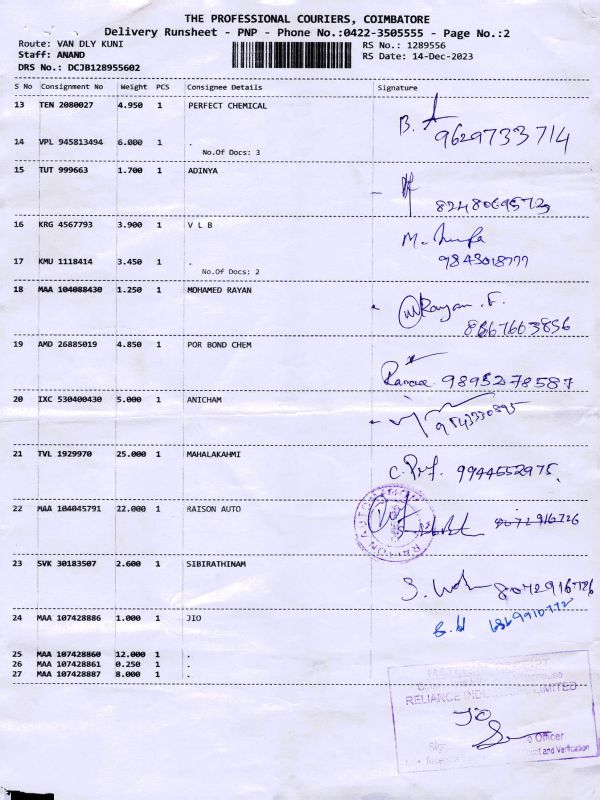 THE PROFESSIONAL COURIERS, COIMBATORE
Delivery Runsheet - PNP - Phone No.:0422-3505555 - Page No.:2
Route: VAN DLY KUNI
RS No.: 1289556
Staff: ANAND
RS Date: 14-Dec-2023
DRS No.: DCJB128955602
S No Consignment No Weight PCS Consignee Details Signature
13 TEN 2080027 4.950 1 PERFECT CHEMICAL
B.
9629733714
14 VPL 945813494 6.000 1 .
No.Of Docs: 3
15 TUT 999663 1.700 1 ADINYA
8248069573
16 KRG 4567793 3.900 1 V L B
M.
9843018777
17 KMU 1118414 3.450 1 .
No.Of Docs: 2
18 MAA 104088430 1.250 1 MOHAMED RAYAN
Rayan .F.
8667663856
19 AMD 26885019 4.850 1 POR BOND CHEM
9895278587
20 IXC 530400430 5.000 1 ANICHAM
9543330895
21 TVL 1929970 25.000 1 MAHALAKAHMI
9944552975
22 MAA 104045791 22.000 1 RAISON AUTO
RAISON AUTOMATION
23 SVK 30183507 2.600 1 SIBIRATHINAM
S. 8072916726
24 MAA 107428886 1.000 1 JIO
25 MAA 107428860 12.000 1 .
26 MAA 107428861 0.250 1 .
27 MAA 107428887 8.000 1 .
RELIANCE INDUSTRIES LIMITED
JIO
Officer
and Verification